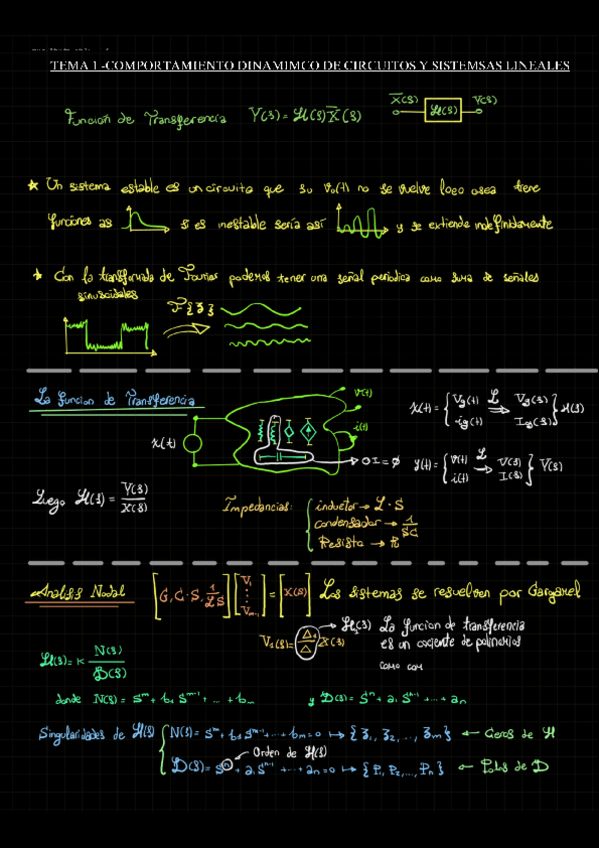 TEMA 1 -COMPORTAMIENTO DINAMIMCO DE CIRCUITOS Y SISTEMSAS LINEALES
Función de Transferencia Y(s) = H(s) X(s)
X(s) H(s) Y(s)
* Un sistema estable es un circuito que su vo(t) no se vuelve loco osea tiene
funciones as si es inestable sería así y se extiende indefinidamente
* Con la transformada de Fourier podemos tener una señal periodica como suma de señales
sinusoidales
F{ }
La funcion de Transferencia
x(t)
v(t)
i(t)
I = ∅
x(t) = { Vg(t) L ⇒ Vg(s) } X(s)
ig(t) Ig(s)
y(t) = { v(t) L → V(s) } Y(s)
i(t) I(s)
Luego H(s) = Y(s)/X(s)
Impedancias: { inductor → L·S
condensador → 1/SC
Resista → R
Analisis Nodal [G, C·S, 1/LS] [V1 ⋮ Vm-1] = [X(s)] Los sistemas se resuelven por Gargamel
V1(s) = Δ1/Δ X(s) → H(s) La funcion de transferencia
es un cociente de polinomios
como com
H(s) = K N(s)/D(s)
donde N(s) = S^m + b1 S^m-1 + ... + bm y D(s) = S^n + a1 S^n-1 + ... + an
Singularidades de H(s) { N(s) = S^m + b1 S^m-1 + ... + bm = 0 ↦ {z1, z2, ..., zm} ← Ceros de H
Orden de H(s)
D(s) = S^n + a1 S^n-1 + ... + an = 0 ↦ {P1, P2, ..., Pn} ← Polos de D